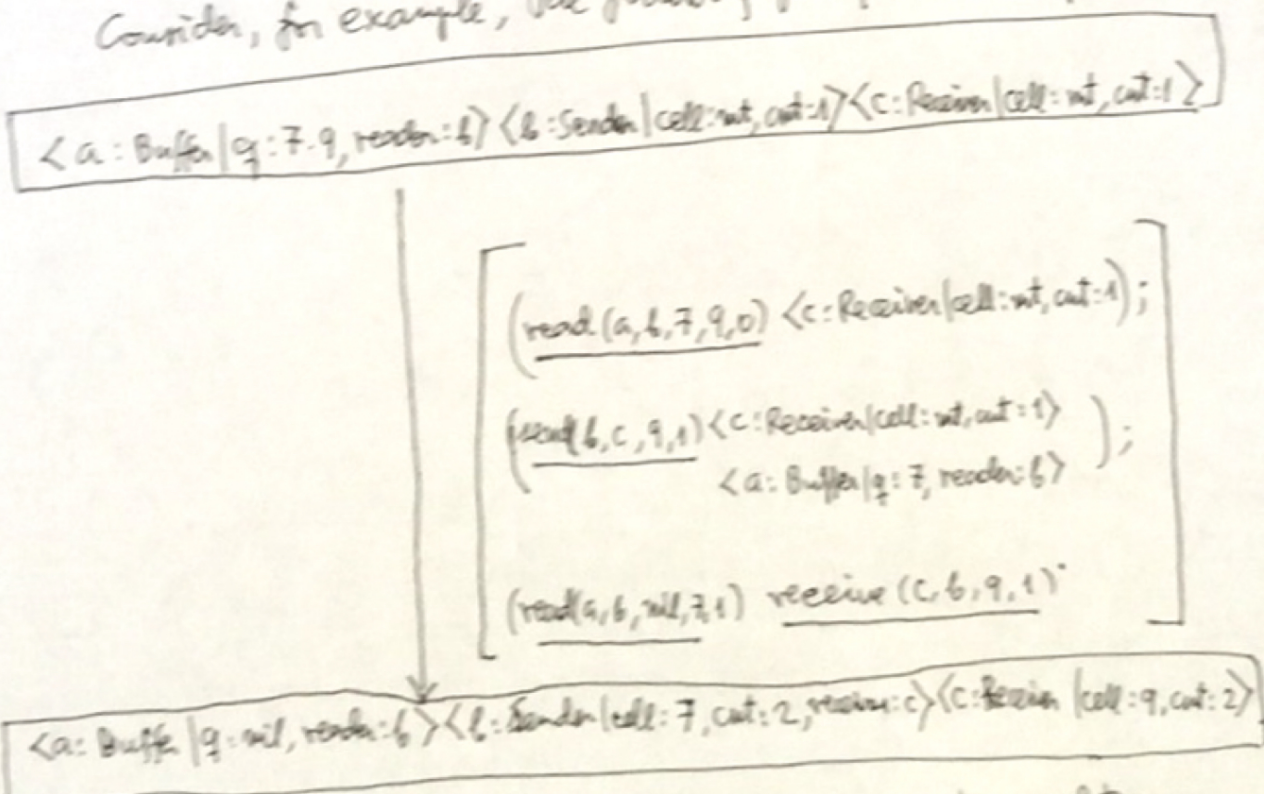 Consider, for example, the following
<a : Buffer | q : 7.9, reader : b> <b : Sender | cell : mt, cnt : 1> <c : Receiver | cell : mt, cnt : 1>
(read (a, b, 7, 9, 0) <c : Receiver | cell : mt, cnt : 1);
(send(b, c, 9, 1) <c : Receiver | cell : mt, cnt : 1>
<a : Buffer | q : 7, reader : b> );
(read(a, b, nil, 7, 1) receive (c, b, 9, 1)
<a : Buffer | q : nil, reader : b> <b : Sender | cell : 7, cnt : 2, receiver : c> <c : Receiver | cell : 9, cnt : 2>